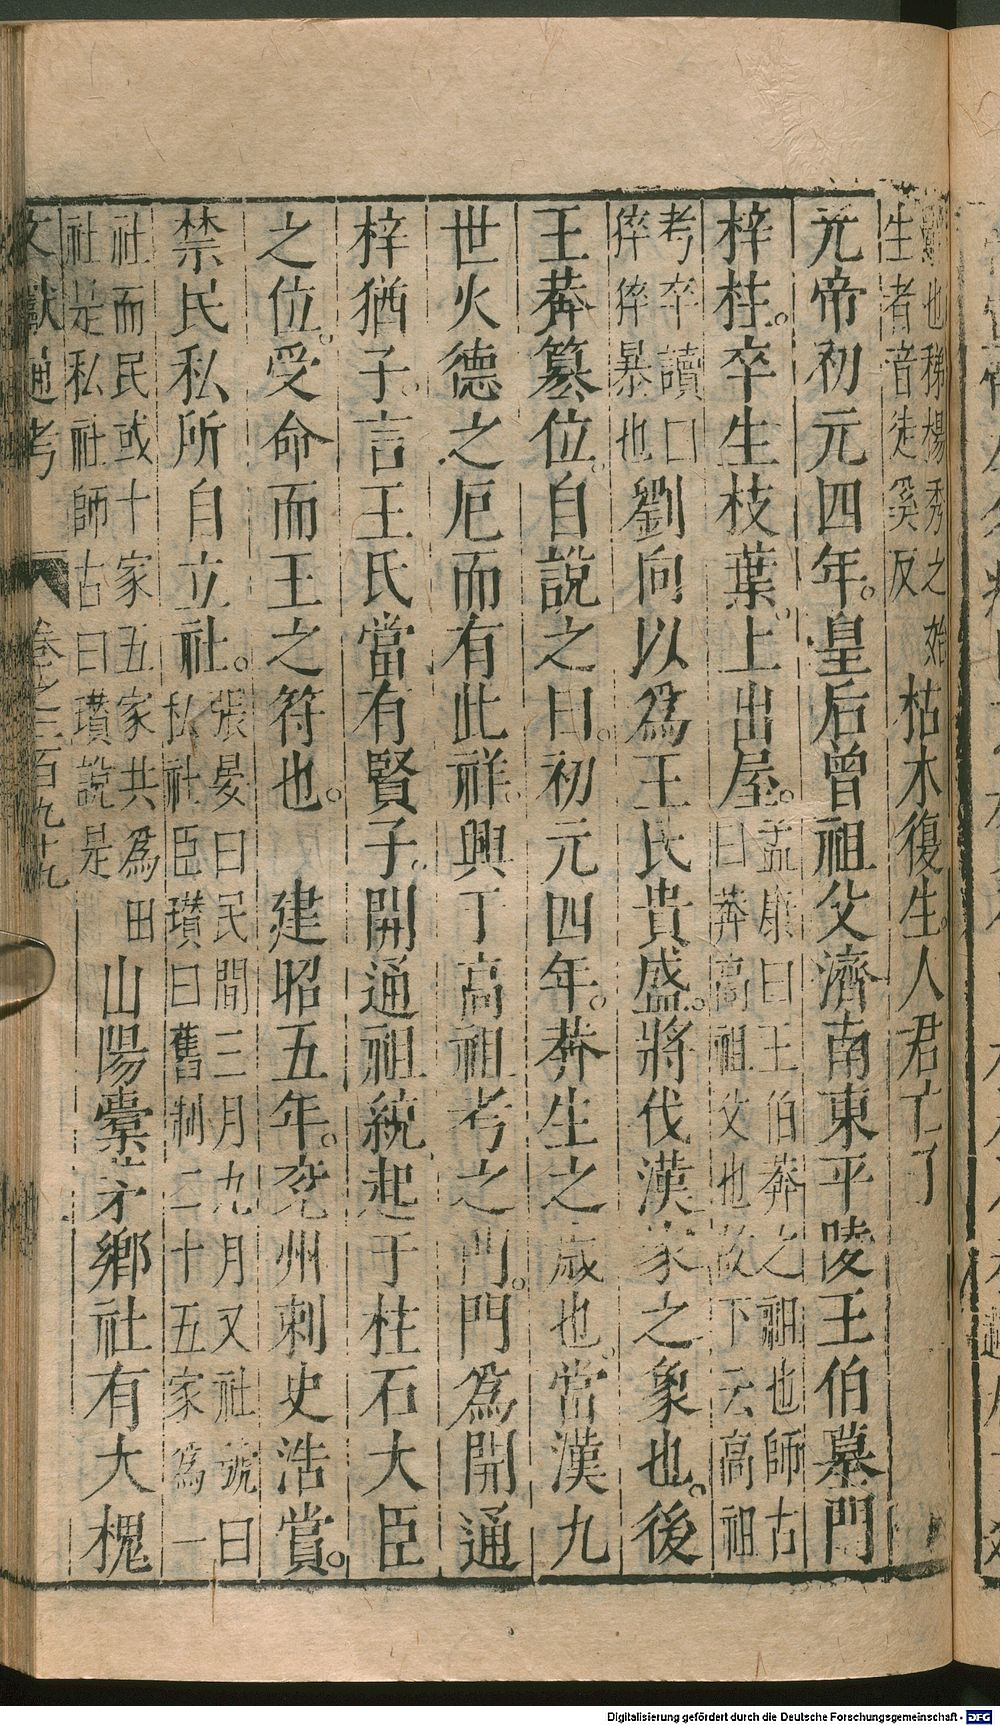 也稊楊秀之始
生者音徒奚反
枯木復生人君亡子
元帝初元四年。皇后曾祖父濟南東平陵王伯墓門
梓柱。卒生枝葉。上出屋。
孟康曰王伯莽之祖也師古
曰莽高祖父也故下云高祖
考卒讀曰
猝猝暴也
劉向以爲王氏貴盛。將代漢家之象也。後
王莽篡位。自說之曰。初元四年。莽生之歲也。當漢九
世火德之厄而有此祥。興于高祖考之門。門爲開通
梓猶子。言王氏當有賢子。開通祖統起于柱石大臣
之位。受命而王之符也。　建昭五年。兗州刺史浩賞。
禁民私所自立社。
張晏曰民間三月九月又社號曰
私社臣瓚曰舊制二十五家爲一
社而民或十家五家共爲田
社是私社師古曰瓚說是
山陽橐茅鄉社有大槐
文獻通考　卷之三百九十九
Digitalisierung gefördert durch die Deutsche Forschungsgemeinschaft - DFG